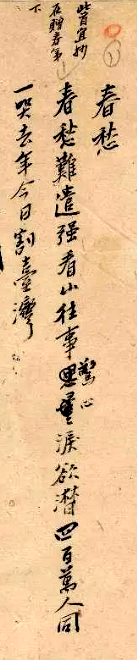 ①
此首宜抄
下
春愁
春愁難遣强看山往事思量淚欲潸四百萬人同
驚心
一哭去年今日割臺灣